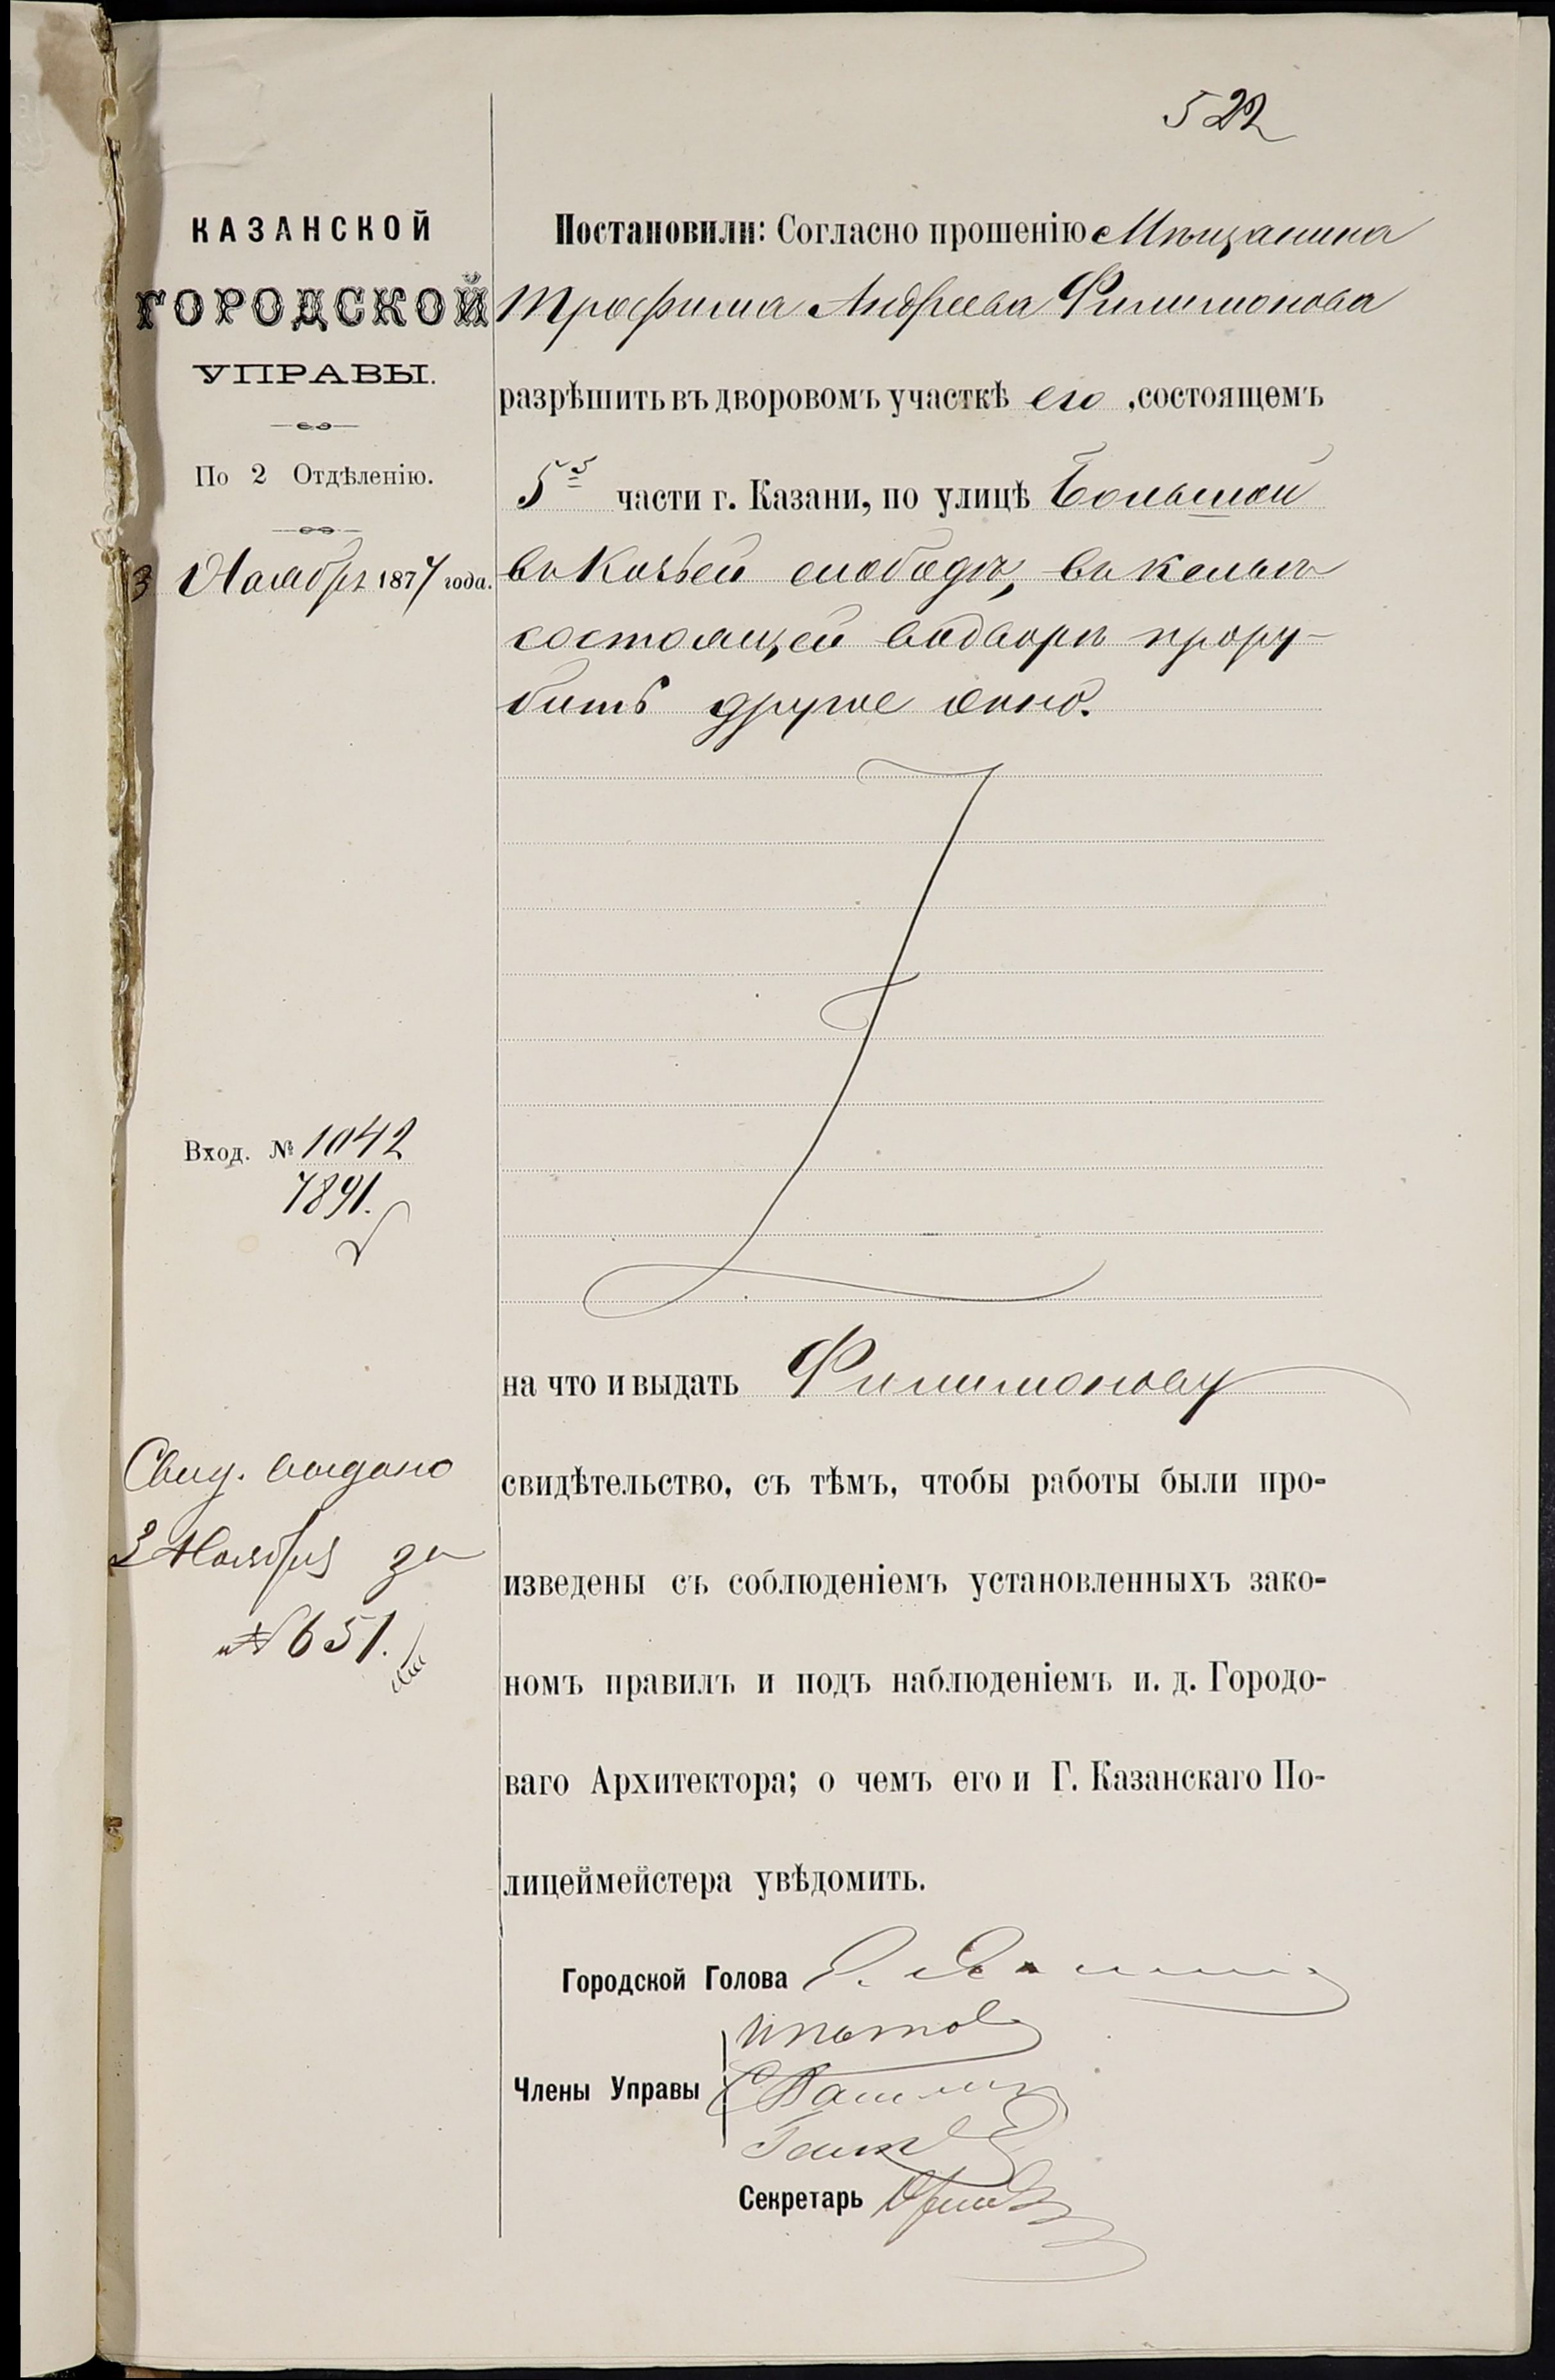 522
КАЗАНСКОЙ
ГОРОДСКОЙ
УПРАВЫ.
По 2 Отдѣленію.
3 Ноября 1877 года.
Вход. № 1042
7891.
Свид. выдано
3 Ноября за
№ 651.
Постановили: Согласно прошенію Мѣщанина
Трофима Андреева Филимонова
разрѣшить въ дворовомъ участкѣ его, состоящемъ
5й части г. Казани, по улицѣ Большой
въ Козьей слободѣ, въ кельѣ
состоящей водворѣ прору-
бить другое окно.
на что и выдать Филимонову
свидѣтельство, съ тѣмъ, чтобы работы были про-
изведены съ соблюденіемъ установленныхъ зако-
номъ правилъ и подъ наблюденіемъ и. д. Городо-
ваго Архитектора; о чемъ его и Г. Казанскаго По-
лицеймейстера увѣдомить.
Городской Голова
Члены Управы
Ипатов
Секретарь